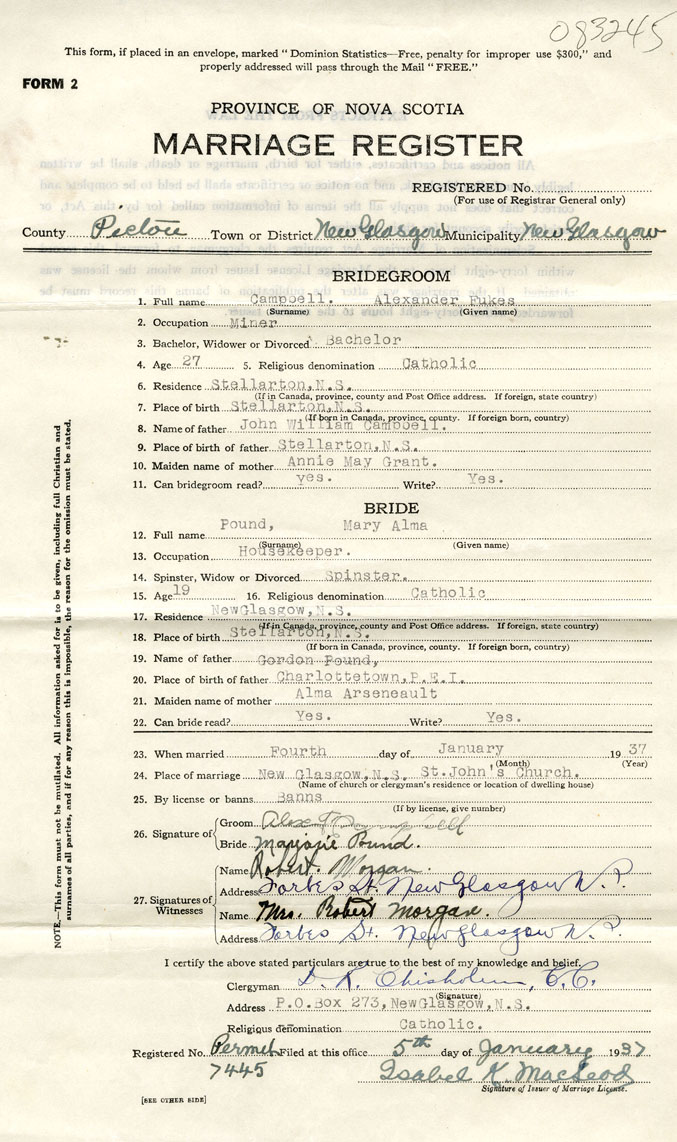 083245
This form, if placed in an envelope, marked "Dominion Statistics—Free, penalty for improper use $300," and
properly addressed will pass through the Mail "FREE."
FORM 2
PROVINCE OF NOVA SCOTIA
MARRIAGE REGISTER
REGISTERED No.
(For use of Registrar General only)
County Pictou Town or District New Glasgow Municipality New Glasgow
BRIDEGROOM
1. Full name Campbell. Alexander Fukes
(Surname) (Given name)
2. Occupation Miner
3. Bachelor, Widower or Divorced Bachelor
4. Age 27 5. Religious denomination Catholic
6. Residence Stellarton,N.S.
(If in Canada, province, county and Post Office address. If foreign, state country)
7. Place of birth Stellarton,N.S.
(If born in Canada, province, county. If foreign born, country)
8. Name of father John William Campbell.
9. Place of birth of father Stellarton,N.S.
10. Maiden name of mother Annie May Grant.
11. Can bridegroom read? yes. Write? Yes.
BRIDE
12. Full name Pound, Mary Alma
(Surname) (Given name)
13. Occupation Housekeeper.
14. Spinster, Widow or Divorced Spinster.
15. Age 19 16. Religious denomination Catholic
17. Residence NewGlasgow,N.S.
(If in Canada, province, county and Post Office address. If foreign, state country)
18. Place of birth Stellarton,N.S.
(If born in Canada, province, county. If foreign born, country)
19. Name of father Gordon Pound,
20. Place of birth of father Charlottetown,P.E.I.
21. Maiden name of mother Alma Arseneault
22. Can bride read? Yes. Write? Yes.
23. When married Fourth day of January 1937
(Month) (Year)
24. Place of marriage New Glasgow,N.S. St.John's Church.
(Name of church or clergyman's residence or location of dwelling house)
25. By license or banns Banns
(If by license, give number)
26. Signature of Groom Alex Campbell
Bride Marjorie Pound.
27. Signatures of Witnesses Name Robert Morgan.
Address Forbes St. New Glasgow
Name Mrs. Robert Morgan.
Address Forbes St. New Glasgow
I certify the above stated particulars are true to the best of my knowledge and belief.
Clergyman D. R. Chisholm, C.C.
(Signature)
Address P.O.Box 273, NewGlasgow,N.S.
Religious denomination Catholic.
Registered No. Permit Filed at this office 5th day of January 1937
7445 Isabel K. MacLeod
Signature of Issuer of Marriage License.
[SEE OTHER SIDE]
NOTE.—This form must not be mutilated. All information asked for is to be given, including full Christian and
surnames of all parties, and if for any reason this is impossible, the reason for the omission must be stated.